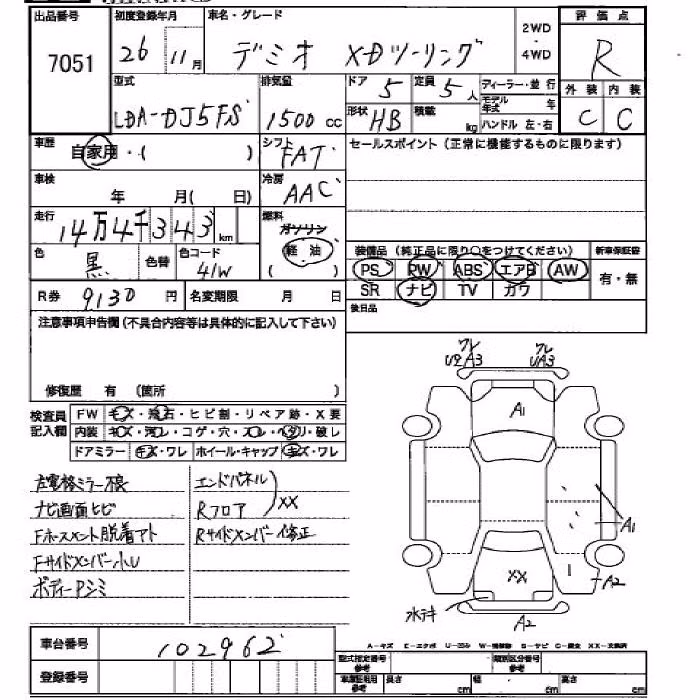 出品番号 初度登録年月 車名・グレード 2WD・4WD 評価点
7051 26年 11月 デミオ XDツーリング R
型式 排気量 ドア 5 定員 5人 ディーラー・並行 外装 内装
LDA-DJ5FS 1500cc 形状 HB 積載 kg モデル年式 年 ハンドル 左・右 C C
車歴 自家用・( ) シフト FAT セールスポイント(正常に機能するものに限ります)
車検 年 月( 日) 冷房 AAC
走行 14万4千343km 燃料 ガソリン 軽油 ( )
色 黒 色替 色コード 41W
装備品(純正品に限り○をつけてください) 新車保証書
PS PW ABS エアB AW 有・無
SR ナビ TV カワ
R券 9130円 名変期限 月 日 後日品
注意事項申告欄(不具合内容等は具体的に記入して下さい)
修復歴 有 (箇所 )
検査員記入欄 FW キズ・飛石・ヒビ割・リペア跡・X要
内装 キズ・汚レ・コゲ・穴・スレ・ヘタリ・破レ
ドアミラー キズ・ワレ ホイール・キャップ キズ・ワレ
左電格ミラー不良 エンドパネル
ナビ画面ヒビ Rフロア XX
Fホースメント脱着アト Rサイドメンバー修正
Fサイドメンバー小U
ボディーPシミ
ワレ U2 A3
ワレ UA3
A1
A1
XX
A2
水デキ
A2
車台番号 102962
登録番号
A-キズ E-エクボ U-凹み W-補修跡 S-サビ C-腐食 XX-交換済
型式指定番号 参考 類別区分番号 参考
車庫証明用 参考 長さ cm 幅 cm 高さ cm